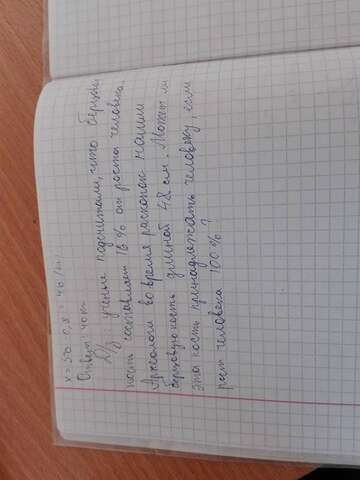 Ответ: 40т
Дз
учёные подсчитали, что берцовая
кость составляет 16% от роста человека.
Археологи во время раскопок нашли
берцовую кость длиной 48 см. Может ли
эта кость принадлежать человеку, если
рост человека 100%?